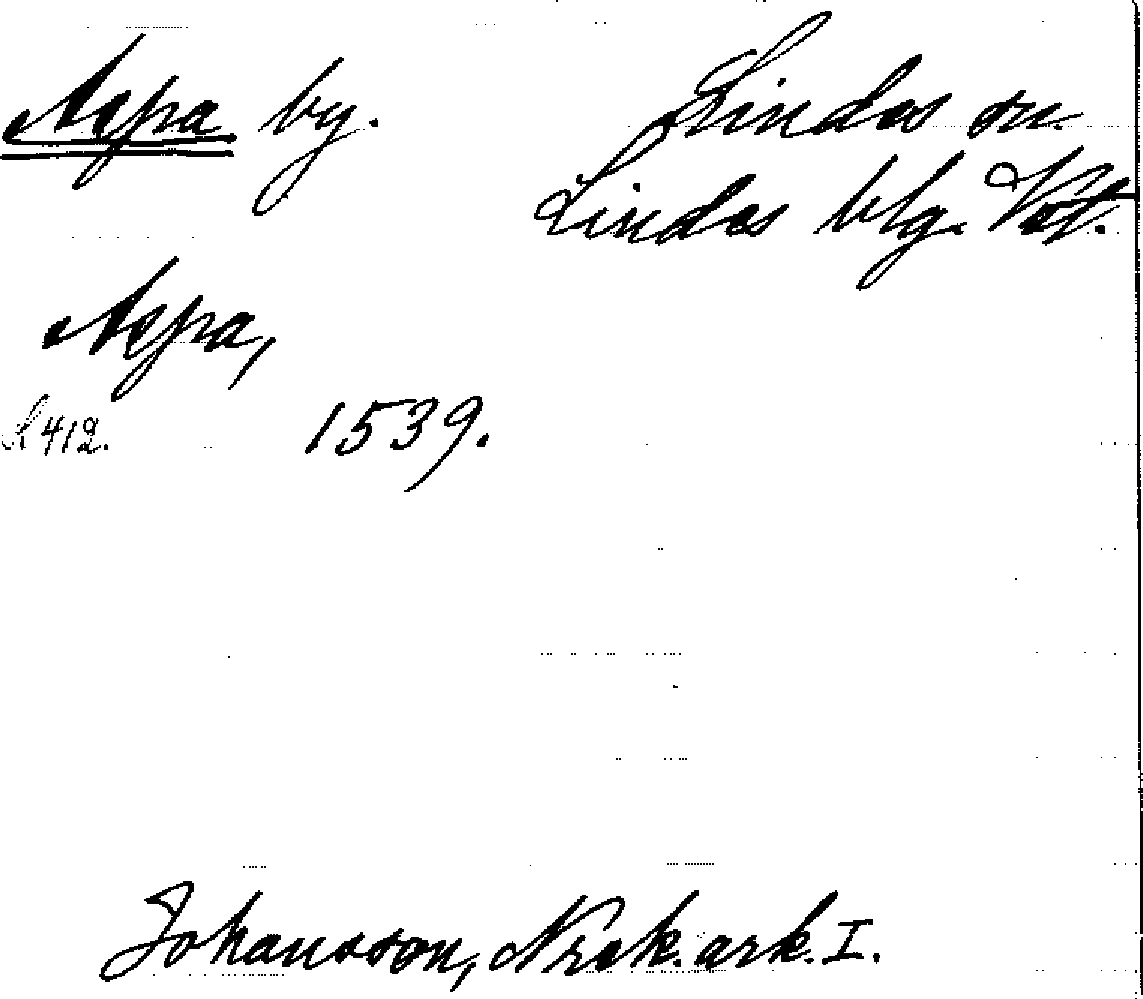 Aspa by.
Lindes sn.
Lindes blg. Vstm.
Aspa,
S. 412. 1539.
Johansson, Norask. ark. I.